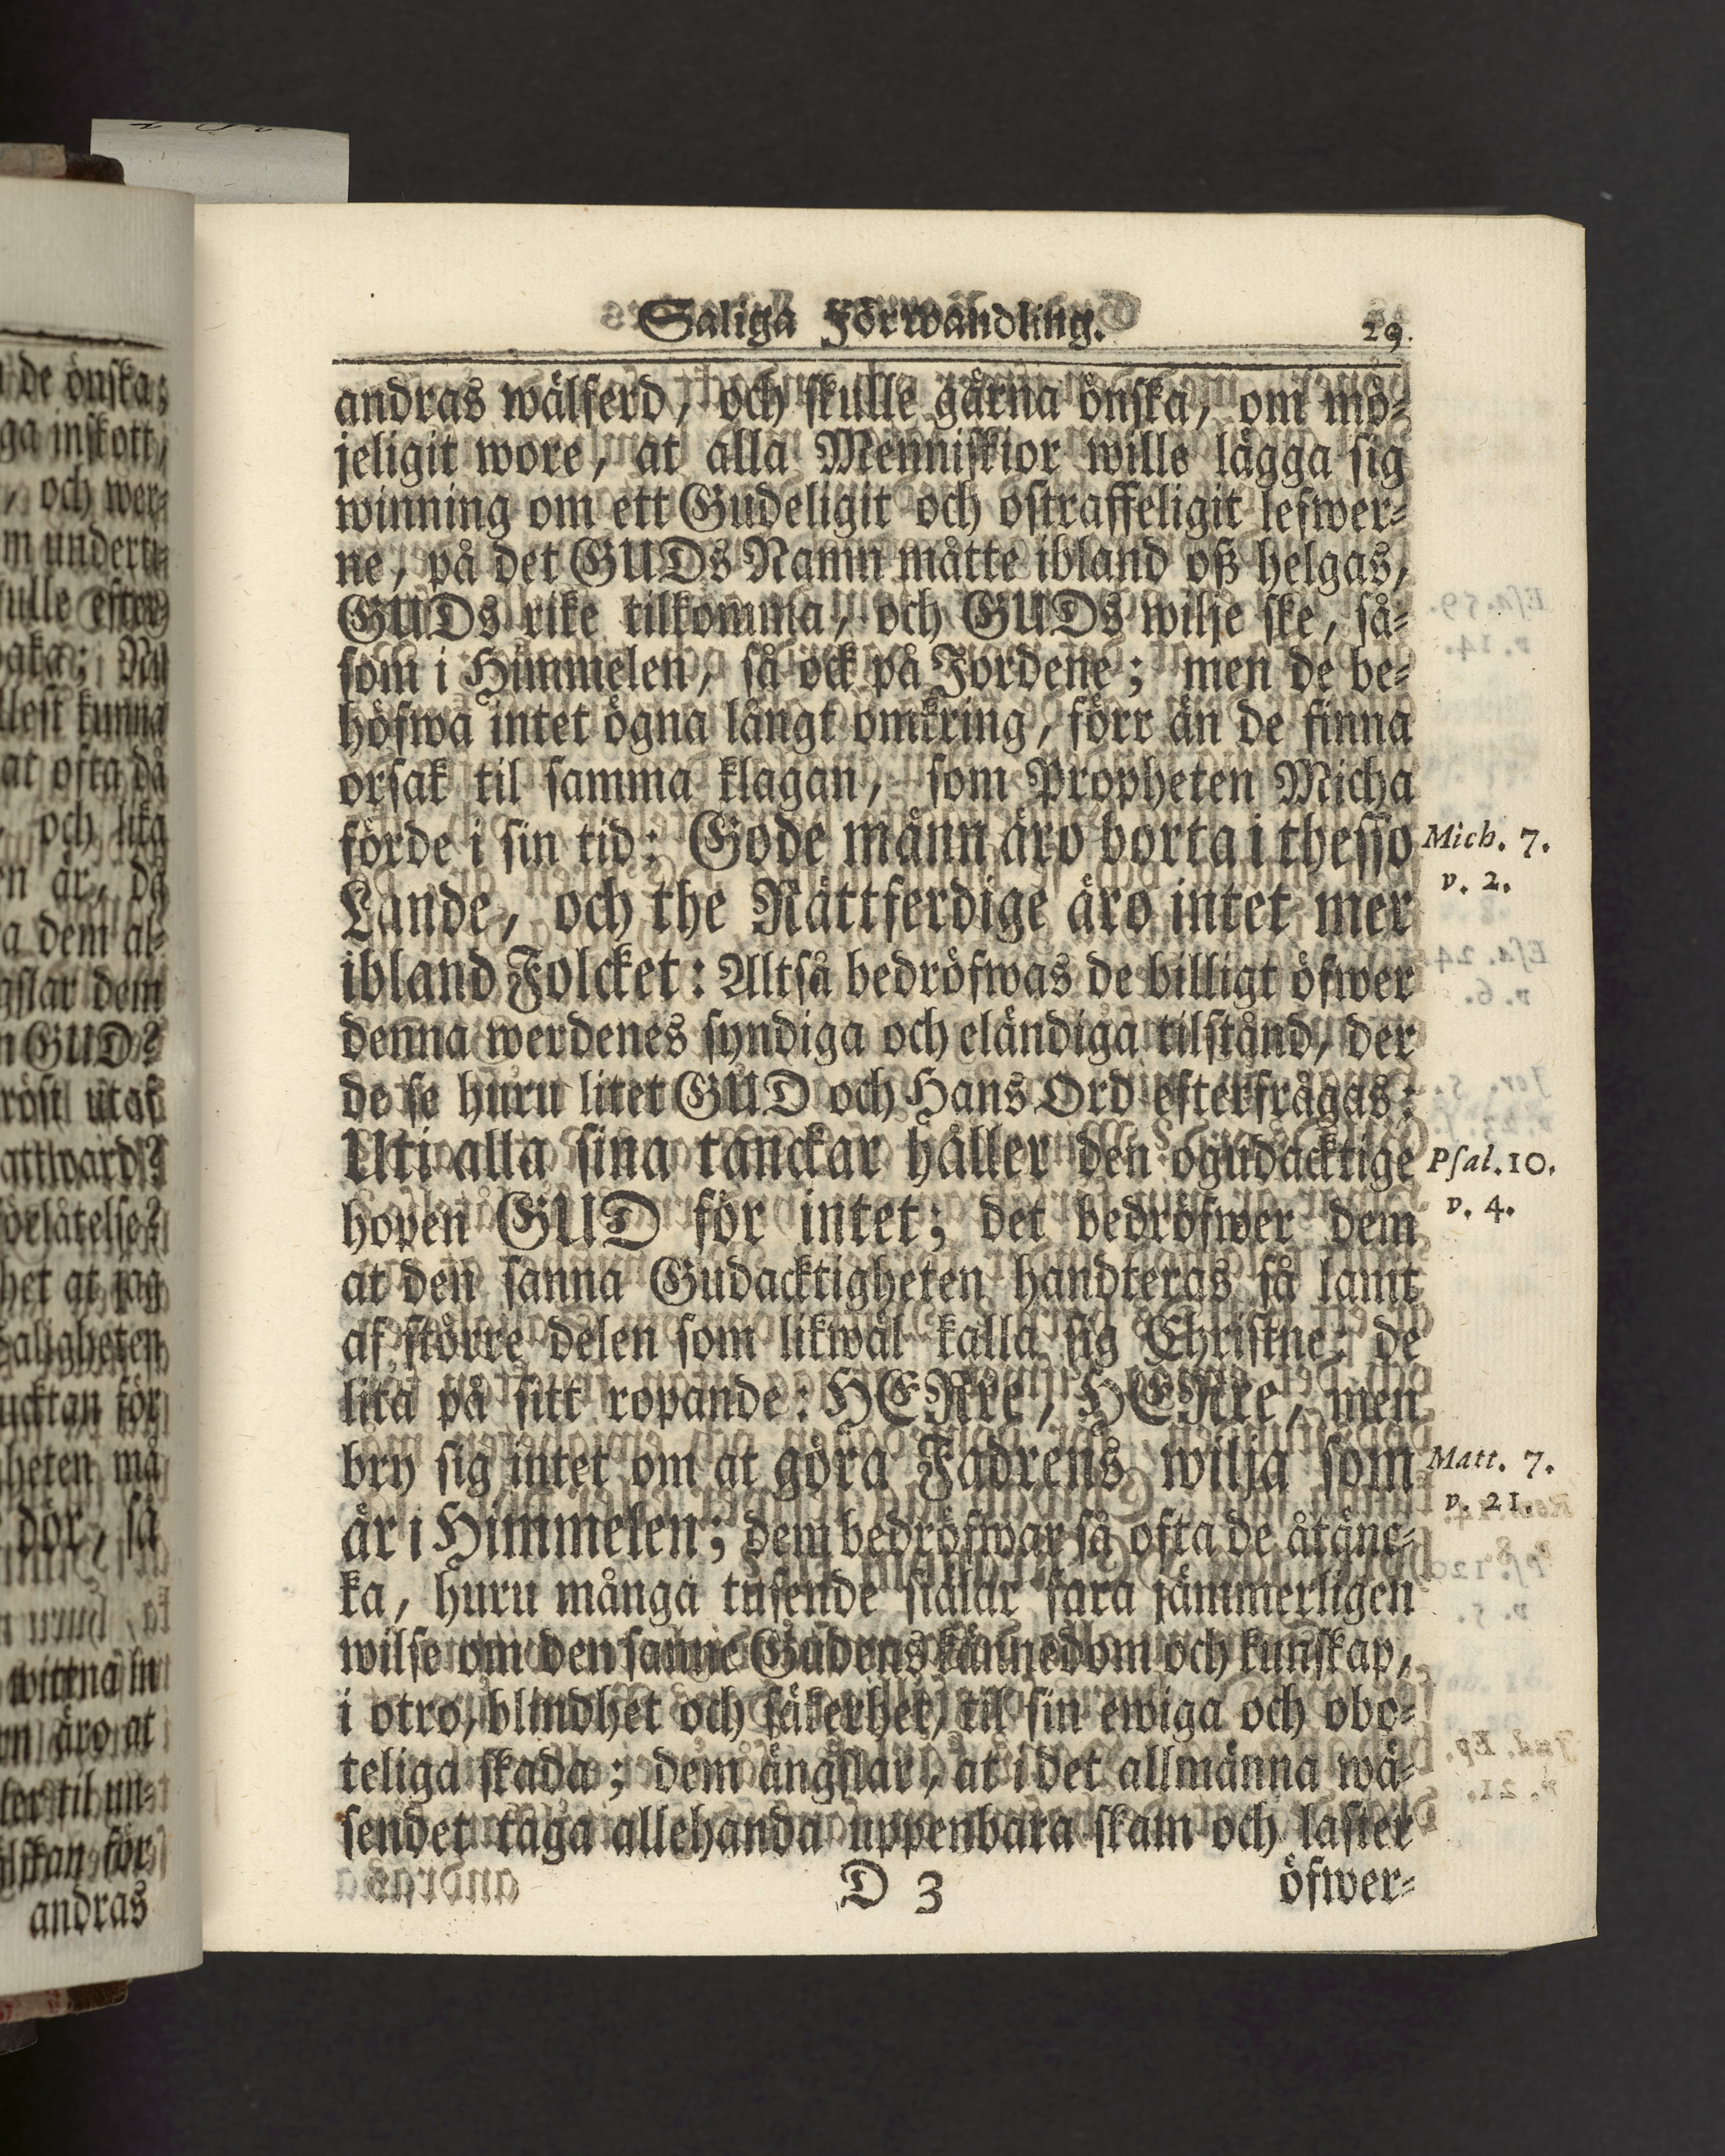 Saliga Förwandling. 29.
andras wälferd, och skulle gärna önska, om mö-
jeligit wore, at alla Menniskior wille lägga sig
winning om ett Gudeligit och ostraffeligit lefwer-
ne, på det GUDs Namn måtte ibland oß helgas,
GUDs rike tilkomma, och GUDs wilje ske, så-
som i Himmelen, så ock på Jordene; men de be-
höfwa intet ögna långt omkring, förr än de finna
orsak til samma klagan, som Propheten Micha
förde i sin tid: Gode männ äro borta i thesso
Mich. 7.
v. 2.
Lande, och the Rättferdige äro intet mer
ibland Folcket: Altså bedröfwas de billigt öfwer
denna werdenes syndiga och eländiga tilstånd, der
de se huru litet GUD och Hans Ord efterfrågas:
Uti alla sina tanckar håller den ogudacktige
Psal. 10.
v. 4.
hopen GUD för intet; det bedröfwer dem
at den sanna Gudacktigheten handteras så lamt
af större delen som likwäl kalla sig Christne: de
lita på sitt ropande: HERre, HERre, men
bry sig intet om at göra Fadrens wilja som
Matt. 7.
v. 21.
är i Himmelen; dem bedröfwar så ofta de åtänc-
ka, huru många tusende siälar fara jämmerligen
wilse om den sanne Gudens kännedom och kunskap,
i otro, blindhet och säkerhet, til sin ewiga och obo-
teliga skada; dem ängslar, at i det allmänna wä-
sendet taga allehanda uppenbara skam och laster
D 3 öfwer-
de önska;
ga inskott,
, och wer-
ulle efter
lest kunna
at ofta då
och lika
a dem al-
gslar dem
n GUD?
röst utaf
attward?
örlåtelse?
het at jag
aligheten
ucktan för
heten må
dör, så
wittna in
n äro at
ter til un-
andras